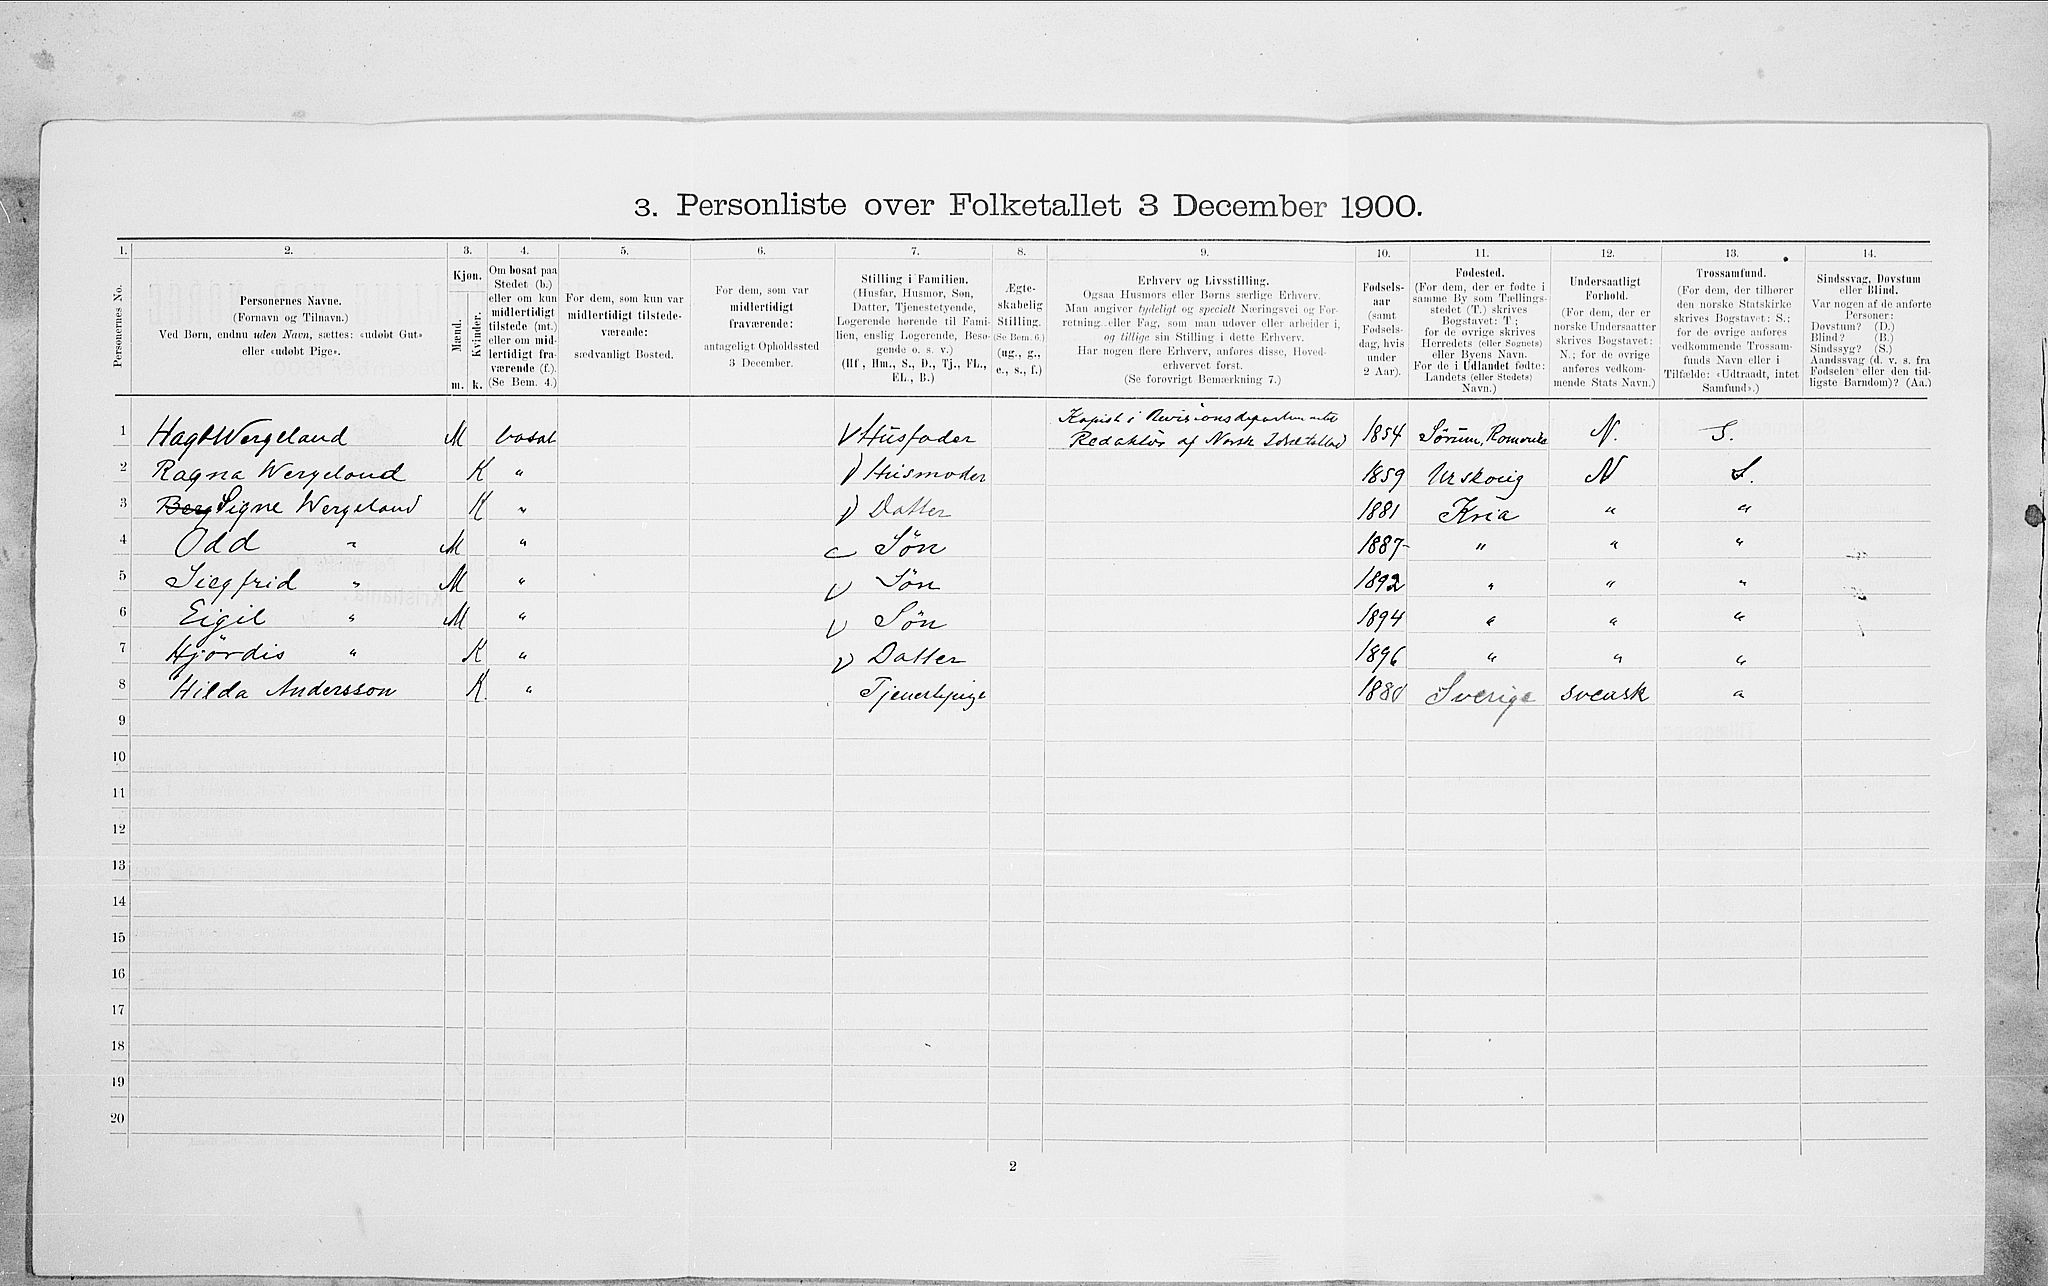 3. Personliste over Folketallet 3 December 1900.
1. 2. 3. 4. 5. 6. 7. 8. 9. 10. 11. 12. 13. 14.
Personernes No.
Personernes Navne.
(Fornavn og Tilnavn.)
Ved Børn, endnu uden Navn, sættes: «udøbt Gut»
eller «udøbt Pige».
Kjøn.
Mænd. Kvinder.
m. k.
Om bosat paa
Stedet (b.)
eller om kun
midlertidigt
tilstede (mt.)
eller om mid-
lertidigt fra-
værende (f.).
(Se Bem. 4.)
For dem, som kun var
midlertidigt tilstede-
værende:
sædvanligt Bosted.
For dem, som var
midlertidigt
fraværende:
antageligt Opholdssted
3 December.
Stilling i Familien.
(Husfar, Husmor, Søn,
Datter, Tjenestetyende,
Logerende hørende til Fami-
lien, enslig Logerende, Besø-
gende o. s. v.)
(Hf, Hm., S., D., Tj., FL.,
EL., B.)
Ægte-
skabelig
Stilling.
(Se Bem. 6.)
(ug., g.,
e., s., f.)
Erhverv og Livsstilling.
Ogsaa Husmors eller Børns særlige Erhverv.
Man angiver tydeligt og specielt Næringsvei og For-
retning eller Fag, som man udøver eller arbeider i,
og tillige sin Stilling i dette Erhverv.
Har nogen flere Erhverv, anføres disse, Hoved-
erhvervet først.
(Se forøvrigt Bemærkning 7.)
Fødsels-
aar
(samt
Fødsels-
dag, hvis
under
2 Aar).
Fødested.
(For dem, der er fødte i
samme By som Tællings-
stedet (T.) skrives
Bogstavet: T;
for de øvrige skrives
Herredets (eller Sognets)
eller Byens Navn.
For de i Udlandet fødte:
Landets (eller Stedets)
Navn.)
Undersaatligt
Forhold.
(For dem, der er
norske Undersaatter
skrives Bogstavet:
N.; for de øvrige
anføres vedkom-
mende Stats Navn.)
Trossamfund.
(For dem, der tilhører
den norske Statskirke
skrives Bogstavet: S.;
for de øvrige anføres
vedkommende Trossam-
funds Navn eller i
Tilfælde: «Udtraadt, intet
Samfund».)
Sindssvag, Døvstum
eller Blind.
Var nogen af de anførte
Personer:
Døvstum? (D.)
Blind? (B.)
Sindssyg? (S.)
Aandssvag (d. v. s. fra
Fødselen eller den tid-
ligste Barndom)? (Aa.)
1 Wergeland M bosat Husfader Kopist i Revisionsdepartementet
Redaktør af Norsk Idrætsblad 1854 Sørum, Romerike N. S.
2 Ragna Wergeland K " Husmoder 1859 Urskoug N S.
3 Berg Signe Wergeland K " Datter 1881 Kria " "
4 Odd " M " Søn 1887 " " "
5 Siegfrid " M " Søn 1892 " " "
6 Eigil " M " Søn 1894 " " "
7 Hjørdis " K " Datter 1896 " " "
8 Hilda Andersson K. " Tjenestepige Sverige svensk "
9
10
11
12
13
14
15
16
17
18
19
20
2